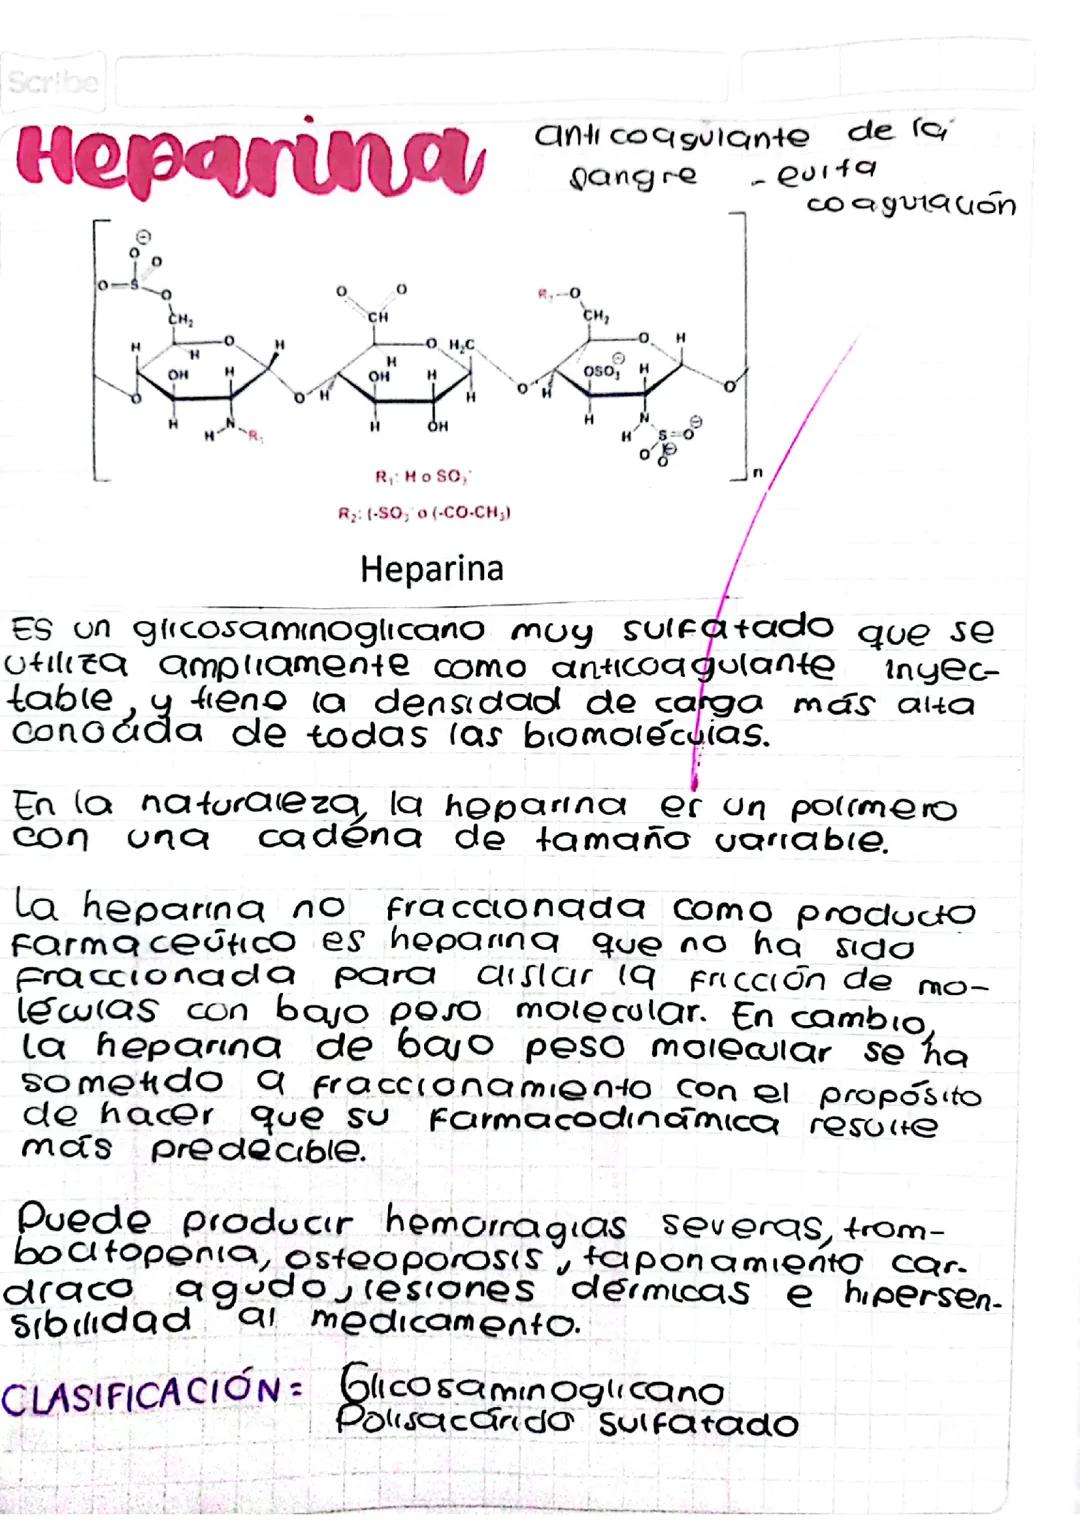 Scribe
Heparina
anticoagulante de la
sangre - evita
coagulación
R₁: H o SO₃⁻
R₂: (-SO₃⁻ o (-CO-CH₃)
Heparina
n
Es un glicosaminoglicano muy sulfatado que se
utiliza ampliamente como anticoagulante inyec-
table, y tieno la densidad de carga más alta
conocida de todas las biomoléculas.
En la naturaleza, la heparina es un polímero
con una cadéna de tamaño variable.
La heparina no fraccionada como producto
farmaceútico es heparina que no ha sido
fraccionada para aislar la fricción de mo-
léculas con bajo peso molecular. En cambio,
la heparina de bajo peso molecular se ha
sometido a fraccionamiento con el propósito
de hacer que su farmacodinámica resulte
más predecible.
Puede producir hemorragias severas, trom-
bocitopenia, osteoporosis, taponamiento car-
diaco agudo, lesiones dérmicas e hipersen-
sibilidad al medicamento.
CLASIFICACIÓN: Glicosaminoglicano
Polisacárido sulfatado